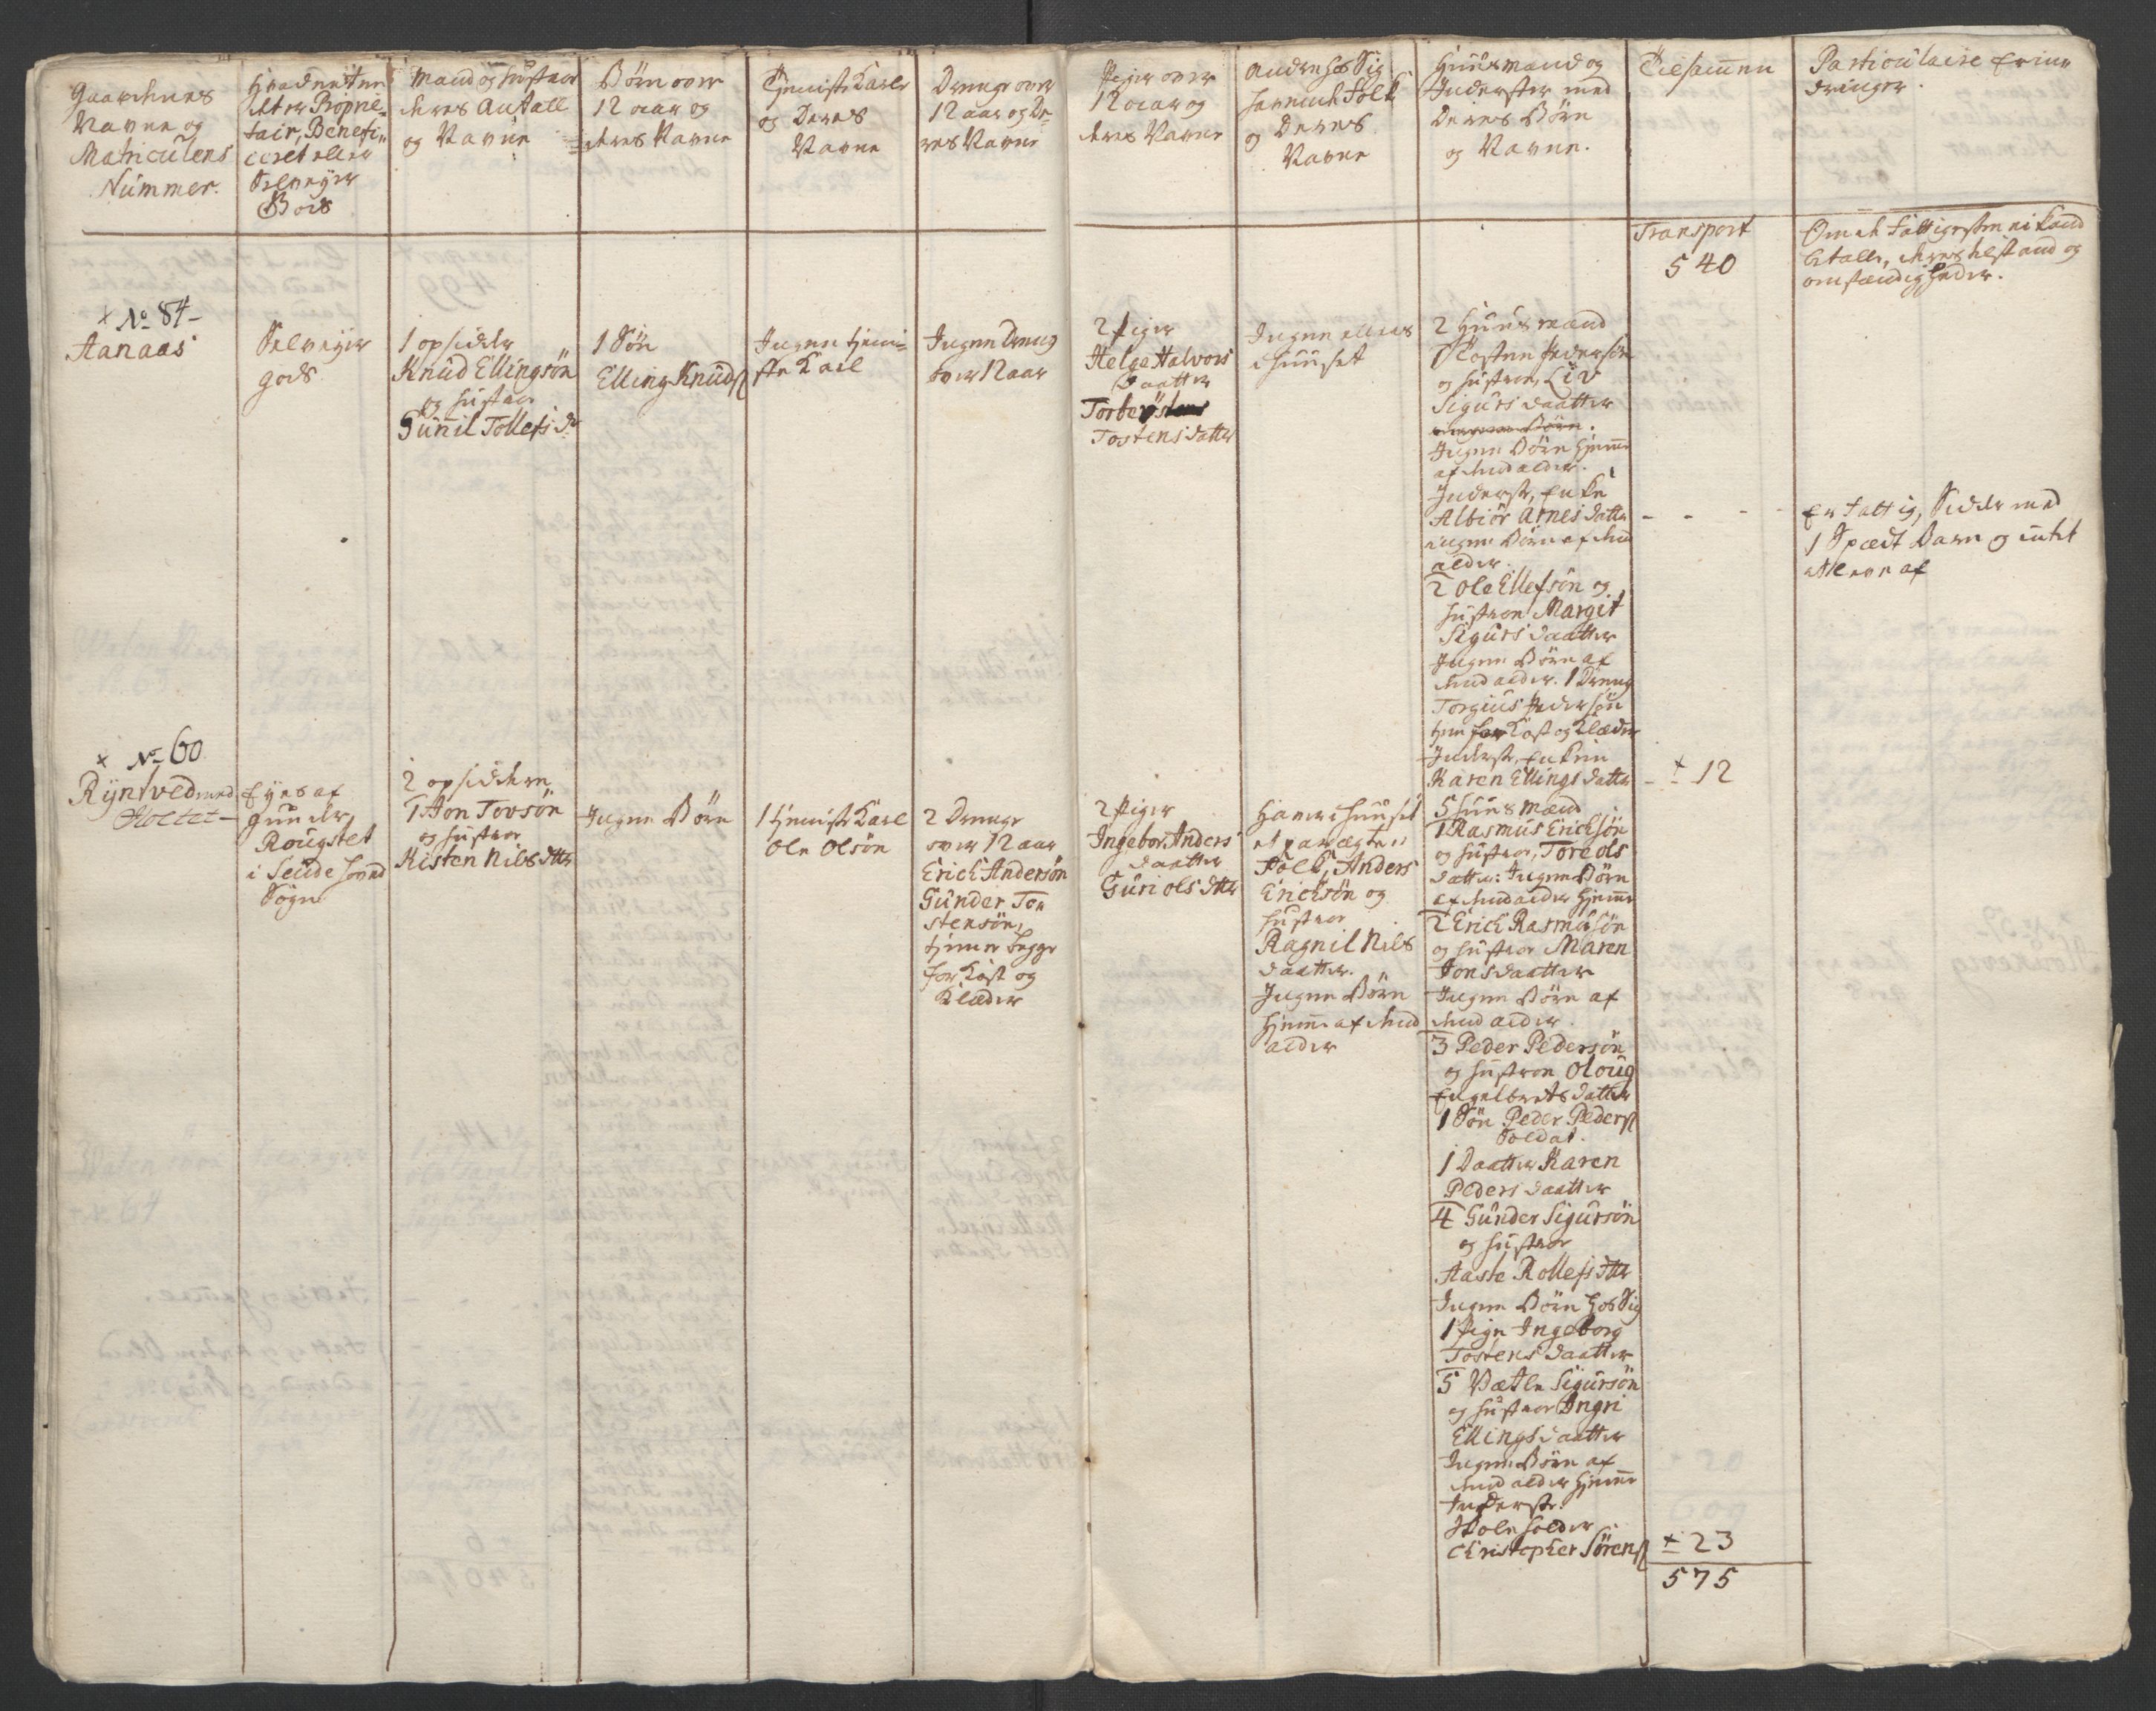 Gaardenes
Navne og
Matriculens
Nummer.
Hvad enten
det er Proprie-
tair, Benefi-
ceret eller
Selveyer
Gods
Mand og Hustroe
deres Antall
og Navne
Børn over
12 aar og
deres Navne
Tieniste Karle
og Deres
Navne
Drenge over
12 aar og De-
res Navne
Piger over
12 aar og
deres Navne
Andre hos Sig
havende Folk
og Deres
Navne
Huusmænd og
Inderster med
Deres Børn
og Navne.
Tilsammen
Particulaire Erin-
dringer.
Transport
540
Om de Fattigste ei kand
betalle, deres tilstand og
omstændigheder.
+ No 84-
Aanaas
Selveyer
gods
1 opsidder
Knud Ellingsön
og Hustroe
Gunil Tollefs dr
1 Søn
Elling Knuds
Ingen tieni-
ste Karl
Ingen Dreng
over 12 aar
2 Piger
Helge Halvors
daatter
Torber
Tostens datter
Ingen ellers
i huuset
2 Huusmænd
1 Tosten Pedersön
og hustroe, Liv
Sigurs daatter
ingen Børn.
Ingen Børn hiemme
af dend alder.
Inderste, Enke
Albiör Arnes datter - - - -
ingen Börn af dend
alder.
Er fattig, Sidder med
1 Spædt Barn og intet
at leve af
2 Ole Ellefsön og
hustroe Margit
Sigurs daatter
Ingen Børn af
dend alder. 1 Dreng
Torgius Pedersön
tien for Kost og Klæder
Inderste, Enken
Karen Ellings datter - + 12
+ No 60
Ryntved med
Holtet -
Eyes af
Gunder
Rougstet
i Seudehovd
Sogn
2 opsiddere
1 Jon Tovsön
og hustroe
Kisten Nils dtter
Ingen Børn
1 tieniste Karl
Ole Olsön
2 Drenge
over 12 aar
Erich Andersön
Gunder To
stensön,
tiener begge
for Kost og
Klæder
2 Piger
Ingebor Anders
daatter
Guri Ols dtter
Haver i huuset
et par ægte
Folk, Anders
Ericksön og
hustroe
Ragnil Nils
daatter.
Ingen Børn
hiemme af dend
alder
5 Huusmænd
1 Rasmus Ericksön
og hustroe, Tore Ols
datter: Ingen Børn
af dend alder hiemme
2 Erich Rasmusön
og hustroe Maren
Jons daatter
Ingen Børn af
dend alder.
3 Peder Pedersön
og hustroe Oloug
Engelbrets datter
1 Søn Peder Peders
Soldat.
1 Daatter Karen
Peders daatter
4 Gunder Sigursön
og hustroe
Aaste Rollefs dtter
Ingen Børn hos Sig
1 Pige Ingeborg
Tostens daatter
5 Vætle Sigursön
og hustroe Ingri
Ellings daatter
Ingen Børn af
dend alder hiemme
Inderste:
Skoleholder
Christopher Sörens + 23
575